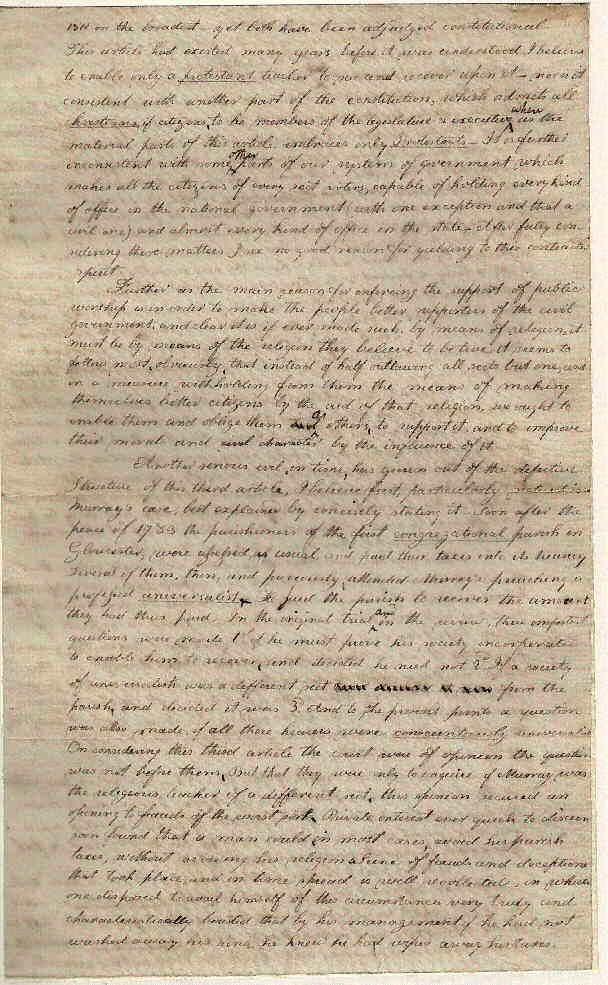 1811 on the broadest – yet both have been adjudged constitutional
This article had existed many years before it was understood I believe
to enable only a protestant teacher to sue and recover upon it – nor is it
consistent with another part of the constitution, which admits all
christians, if citizens, to be members of the legislature & executive, when as the
material parts of this article embraces only protestants – It is further
inconsistent with some other parts of our system of government which
makes all the citizens of every sect voters, capable of holding every kind
of office in the national government (with one exception and that a
civil one) and almost every kind of office in the state – After fully con-
sidering these matters I see no good reason for yielding to this contracted
spirit
Further as the main reason for enforcing the support of public
worship is in order to make the people better supporters of the civil
government, and clear it is if ever made such, by means of religion, it
must be by means of the religion they believe to be true it seems to
follow most obviously, that instead of half outlawing all sects but one, and
in a measure withholding from them the means of making
themselves better citizens by the aid of that religion, we ought to
enable them and oblige them & others, to support it, and to improve
their moral and civil character by the influence of it
Another serious evil, in time, has grown out of the defective
structure of this third article, I believe first, particularly, noticed in
Murray's case, best explained by concisely stating it. Soon after the
peace of 1783 the parishioners of the first congregational parish in
Gloucester, were assessed as usual, and paid their taxes into its treasury
Several of them, then, and previously, attended Murray's preaching a
professed universalist. He sued the parish to recover the amount
they had thus paid. In the original trial and in the review, three important
questions were made 1st if he must prove his society incorporated
to enable him to recover, and decided he need not 2d If a society
of universalists was a different sect from the
parish, and decided it was 3. And to the present point a question
was also made, if all these hearers were conscientiously universalists
On considering this third article the court were of opinion the question
was not before them, but that they were only to enquire if Murray was
the religious teacher of a different sect, this opinion secured an
opening to frauds of the worst sort. Private interest ever quick to discern
soon found that a man could in most cases, avoid his parish
taxes, without avowing his religion a scene of frauds and deceptions
that took place, and in time spread is well recollected, in which
one disposed to avail himself of this circumstance very truly and
characteristically boasted that by his management if he had not
washed away his sins, he knew he had wiped away his taxes.